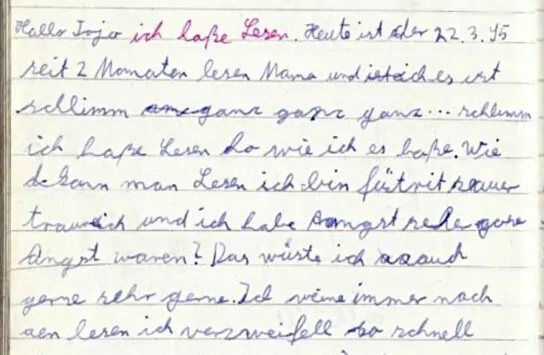 Hallo ich haße Lesen. Heute ist der 22.3.95
seit 2 Momaten lesen Mama und ich es ist
schlimm ganz ganz ganz... schlimm
ich haße Lesen so wie ich es haße. Wie
kann man Lesen ich bin
und ich habe Amgst seher gare
Angst waren? Das wüste ich aauch
gerne sehr gerne. Ich weine immer nach
den lesen ich verzweifell so schnell